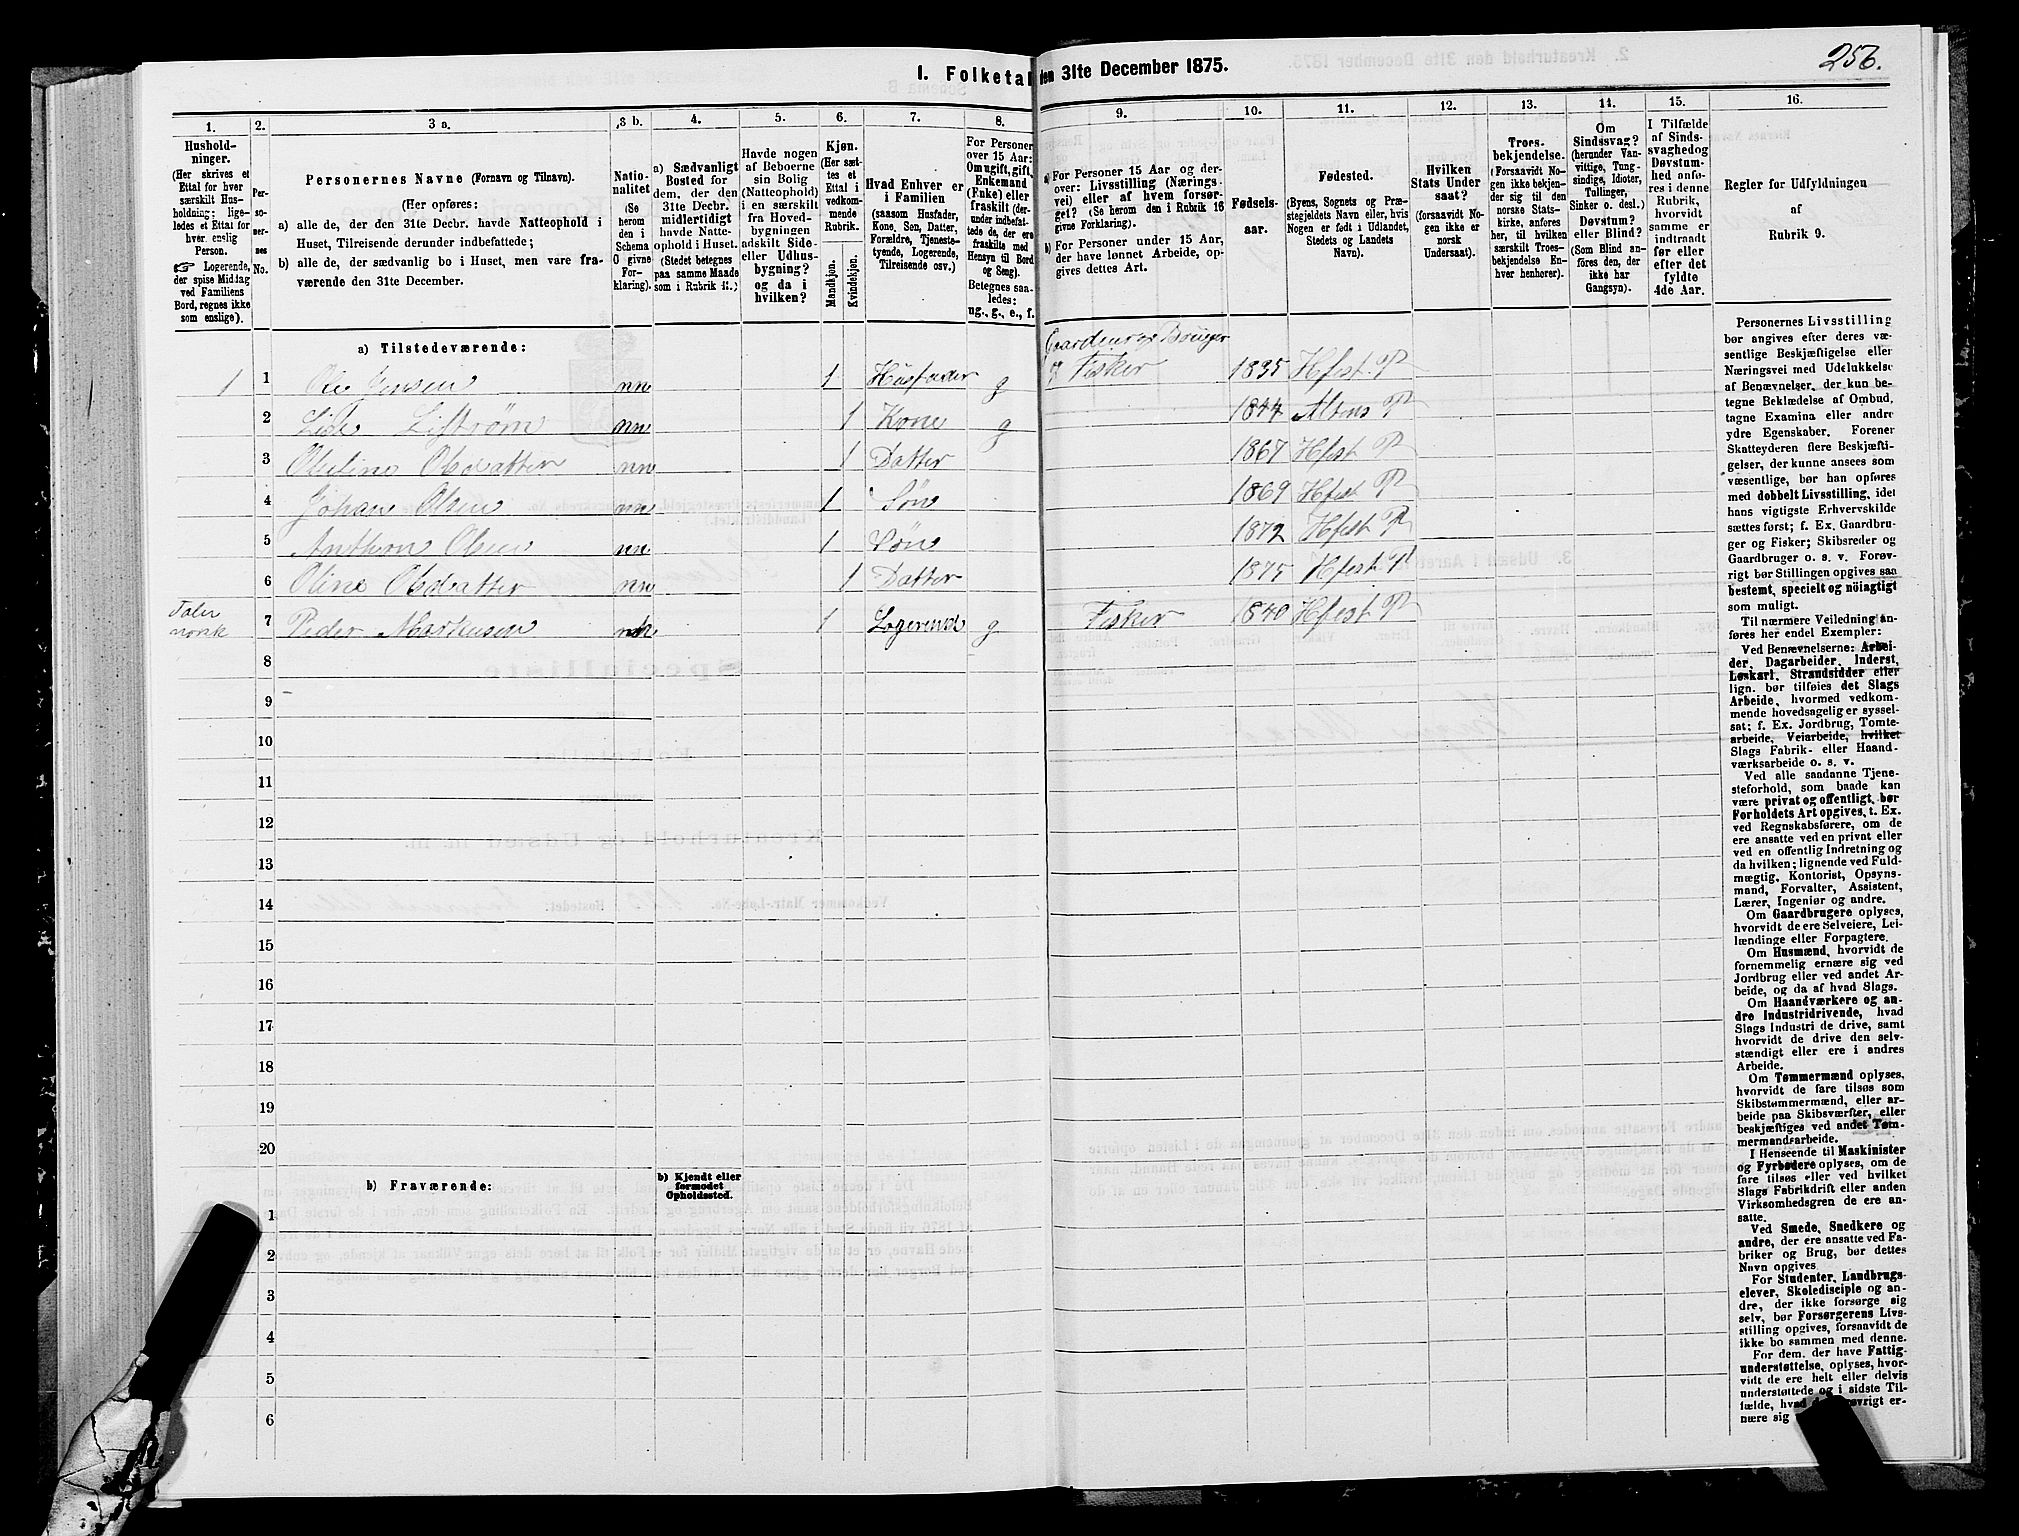 256.
I. Folketal den 31te December 1875.
1. 2. 3 a. 3 b. 4. 5. 6. 7. 8. 9. 10. 11. 12. 13. 14. 15. 16.
Hushold-
ninger.
(Her skrives et
Ettal for hver
særskilt Hus-
holdning; lige-
ledes et Ettal for
hver enslig
Person.
☞ Logerende,
der spise Middag
ved Familiens
Bord, regnes ikke
som enslige).
Per-
so-
ner-
nes
No.
Personernes Navne (Fornavn og Tilnavn).
(Her opføres:
a) alle de, der den 31te Decbr. havde Natteophold i
Huset, Tilreisende derunder indbefattede;
b) alle de, der sædvanlig bo i Huset, men vare fra-
værende den 31te December.
Natio-
nalitet
(Se
herom
den i
Schema
O givne
For-
klaring).
a) Sædvanligt
Bosted for
dem, der den
31te Decbr.
midlertidigt
havde Natte-
ophold i Huset.
(Stedet betegnes
paa samme Maade
som i Rubrik 11.)
Havde nogen
af Beboerne
sin Bolig
(Natteophold)
i en særskilt
fra Hoved-
bygningen
adskilt Side-
eller Udhus-
bygning?
og da i
hvilken?
Kjøn.
(Her sæt-
tes et
Ettal i
vedkom-
mende
Rubrik.
Mandkjøn.
Kvindekjøn.
Hvad Enhver er
i Familien
(saasom Husfader,
Kone, Søn, Datter,
Forældre, Tjeneste-
tyende, Logerende,
Tilreisende osv.)
For Personer
over 15 Aar:
Om ugift, gift,
Enkemand
(Enke) eller
fraskilt (der-
under indbefat-
tede de, der ere
fraskilte med
Hensyn til Bord
og Seng).
Betegnes saa-
ledes:
ug., g., e., f.
a) For Personer 15 Aar og der-
over: Livsstilling (Nærings-
vei) eller af hvem forsør-
get? (Se herom den i Rubrik 16
givne Forklaring).
b) For Personer under 15 Aar,
der have lønnet Arbeide, op-
gives dettes Art.
Fødsels-
aar.
Fødested.
(Byens, Sognets og Præ-
stegjeldets Navn eller, hvis
Nogen er født i Udlandet,
Stedets og Landets
Navn).
Hvilken
Stats Under-
saat?
(forsaavidt No-
gen ikke er
norsk
Undersaat).
Troes-
bekjendelse.
(Forsaavidt No-
gen ikke bekjen-
der sig til den
norske Stats-
kirke, anføres
her, til hvilken
særskilt Troes-
bekjendelse En-
hver henhører).
Om
Sindssvag?
(herunder Van-
vittige, Tung-
sindige, Idioter,
Tullinger,
Sinker o. desl.)
Døvstum?
eller Blind?
(Som Blind an-
føres den, der
ikke har
Gangsyn).
I Tilfælde
af Sinds-
svaghed og
Døvstum-
hed anfø-
res i denne
Rubrik,
hvorvidt
samme er
indtraadt
før eller
efter det
fyldte
4de Aar.
Regler for Udfyldningen
af
Rubrik 9.
a) Tilstedeværende:
Gaardeier og Bruger
1 1 Ole Jensen nn 1 Husfader g og Fisker 1835 Hfest P
2 nn 1 Kone g 1844 Altens P
3 Oleline Olsdatter nn 1 Datter 1867 Hfest P
4 Johan Olsen nn 1 Søn 1869 Hfest P
5 Anthon Olsen nn 1 Søn 1872 Hfest P
6 Oline Olsdatter nn 1 Datter 1875 Hfest P
Taler
norsk 7 Peder Markusen 1 Logerende g Fisker 1840 Hfest P
8
9
10
11
12
13
14
15
16
17
18
19
20
b) Fraværende:
b) Kjendt eller
formodet
Opholdssted.
1
2
3
4
5
6
Personernes Livsstilling
bør angives efter deres væ-
sentlige Beskjæftigelse eller
Næringsvei med Udelukkelse
af Benævnelser, der kun be-
tegne Beklædelse af Ombud,
tagne Examina eller andre
ydre Egenskaber. Forener
Skatteyderen flere Beskjæfti-
gelser, der kunne ansees som
væsentlige, bør han opføres
med dobbelt Livsstilling, idet
hans vigtigste Erhvervskilde
sættes først; f. Ex. Gaardbru-
ger og Fisker; Skibsreder og
Gaardbruger o. s. v. Forøv-
rigt bør Stillingen opgives saa
bestemt, specielt og nöiagtigt
som muligt.
Til nærmere Veiledning an-
føres her endel Exempler:
Ved Benævnelserne: Arbei-
der, Dagarbeider, Inderst,
Løskarl, Strandsidder eller
lign. bør tilføies det Slags
Arbeide, hvormed vedkom-
mende hovedsagelig er syssel-
sat; f. Ex. Jordbrug, Tomte-
arbeide, Veiarbeide, hvilket
Slags Fabrik- eller Haand-
værksarbeide o. s. v.
Ved alle saadanne Tjene-
steforhold, som baade kan
være privat og offentligt, bør
Forholdets Art opgives, t. Ex.
ved Regnskabsførere, om de
ere ansatte ved en privat eller
ved en offentlig Indretning og
da hvilken; lignende ved Fuld-
mægtig, Kontorist, Opsyns-
mand, Forvalter, Assistent,
Lærer, Ingeniør og andre.
Om Gaardbrugere oplyses,
hvorvidt de ere Selveiere, Lei-
lændinge eller Forpagtere.
Om Husmænd, hvorvidt de
fornemmelig ernære sig ved
Jordbrug eller ved andet Ar-
beide, og da af hvad Slags.
Om Haandværkere og an-
dre Industridrivende, hvad
Slags Industri de drive, samt
hvorvidt de drive den selv-
stændigt eller ere i andres
Arbeide.
Om Tømmermænd oplyses,
hvorvidt de fare tilsøs som
Skibstømmermænd, eller ar-
beide paa Skibsværfter, eller
beskjæftiges ved andet Tøm-
mermandsarbeide.
I Henseende til Maskinister
og Fyrbødere oplyses, om de
fare tilsøs eller ved hvilket
Slags Fabrikdrift eller anden
Virksomhedsgren de ere an-
satte.
Ved Smede, Snedkere og
andre, der ere ansatte ved Fa-
briker og Brug, bør dettes
Navn opgives.
For Studenter, Landbrugs-
elever, Skoledisciple og an-
dre, der ikke forsørge sig
selv, bør Forsørgerens Livs-
stilling opgives, forsaavidt de
ikke bo sammen med denne.
For dem, der have Fattig-
understøttelse, oplyses, hvor-
vidt de ere helt eller delvis
understøttede og i sidste Til-
fælde, hvad de forøvrigt er-
nære sig